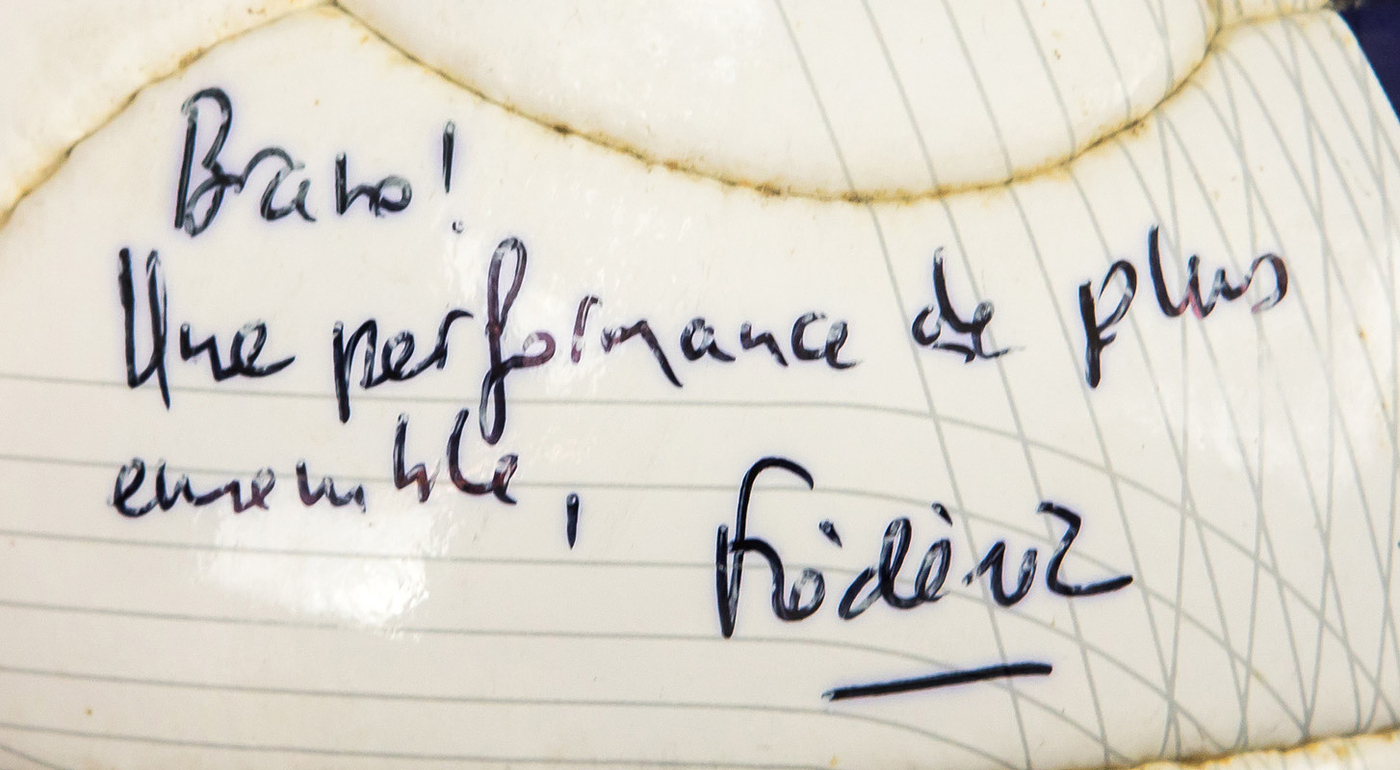 Bravo!
Une performance de plus
ensemble,
Frédéric